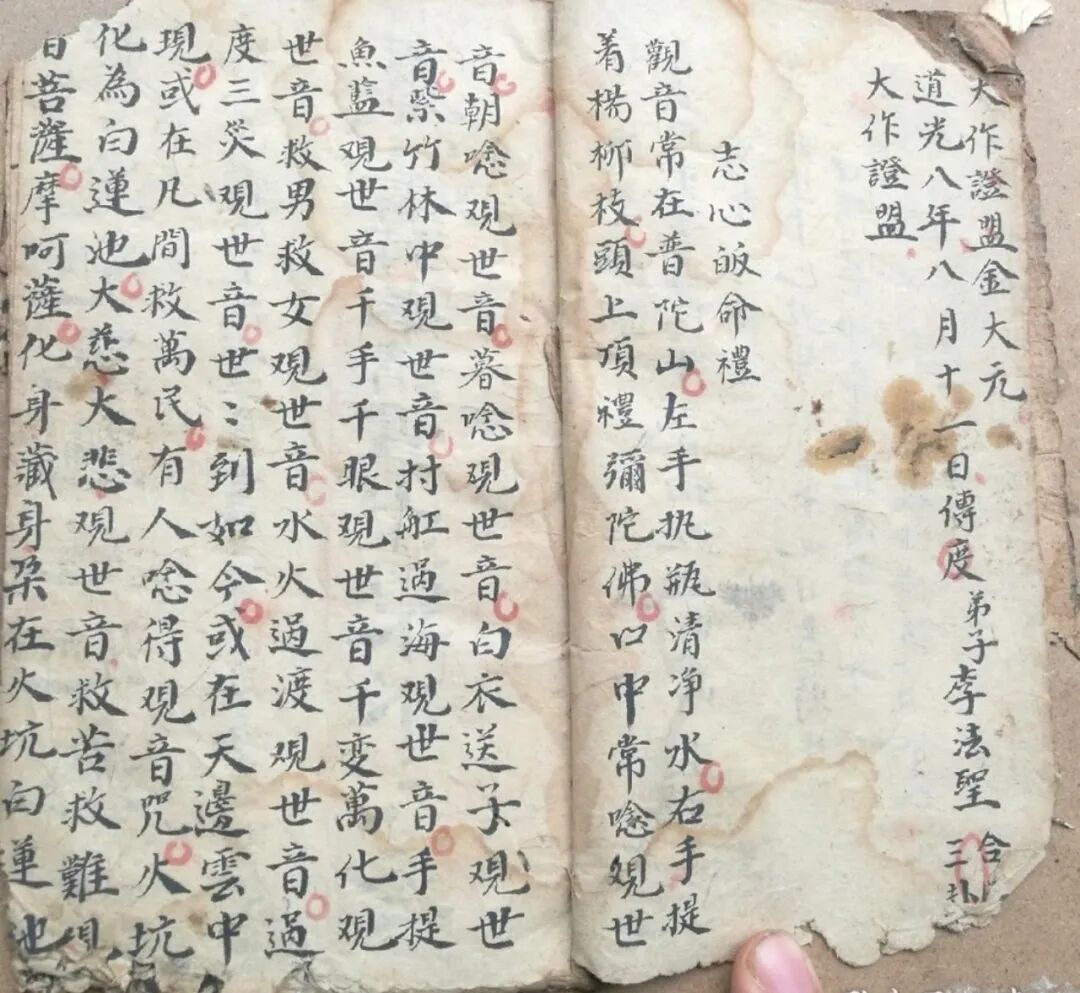 大作證盟金大元
道光八年八月十一日傳度弟子李法聖合三
大作證盟
志心皈命禮
觀音常在普陀山左手执瓶清净水右手提
着楊柳枝頭上頂禮彌陀佛口中常唸観世
音朝唸観世音暮唸観世音白衣送子観世
音紫竹林中観世音村舡過海観世音手提
魚籃観世音千手千眼観世音千变萬化観
世音救男救女観世音水火過渡観世音過
度三災観世音世〻到如今或在天邊雲中
現或在凡間救萬民有人唸得観音咒火坑
化為白蓮池大慈大悲観世音救苦救難観
音菩薩摩呵薩化身藏身朵在火坑白蓮池